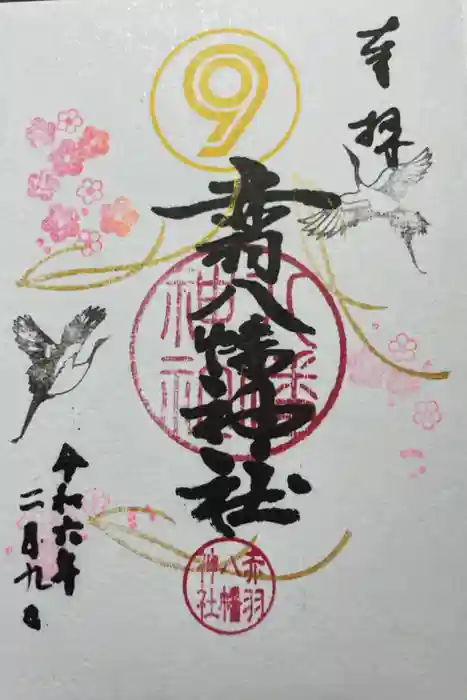 奉拝
9
赤羽八幡神社
八幡神社
赤羽八幡神社
令和六年
二月九日